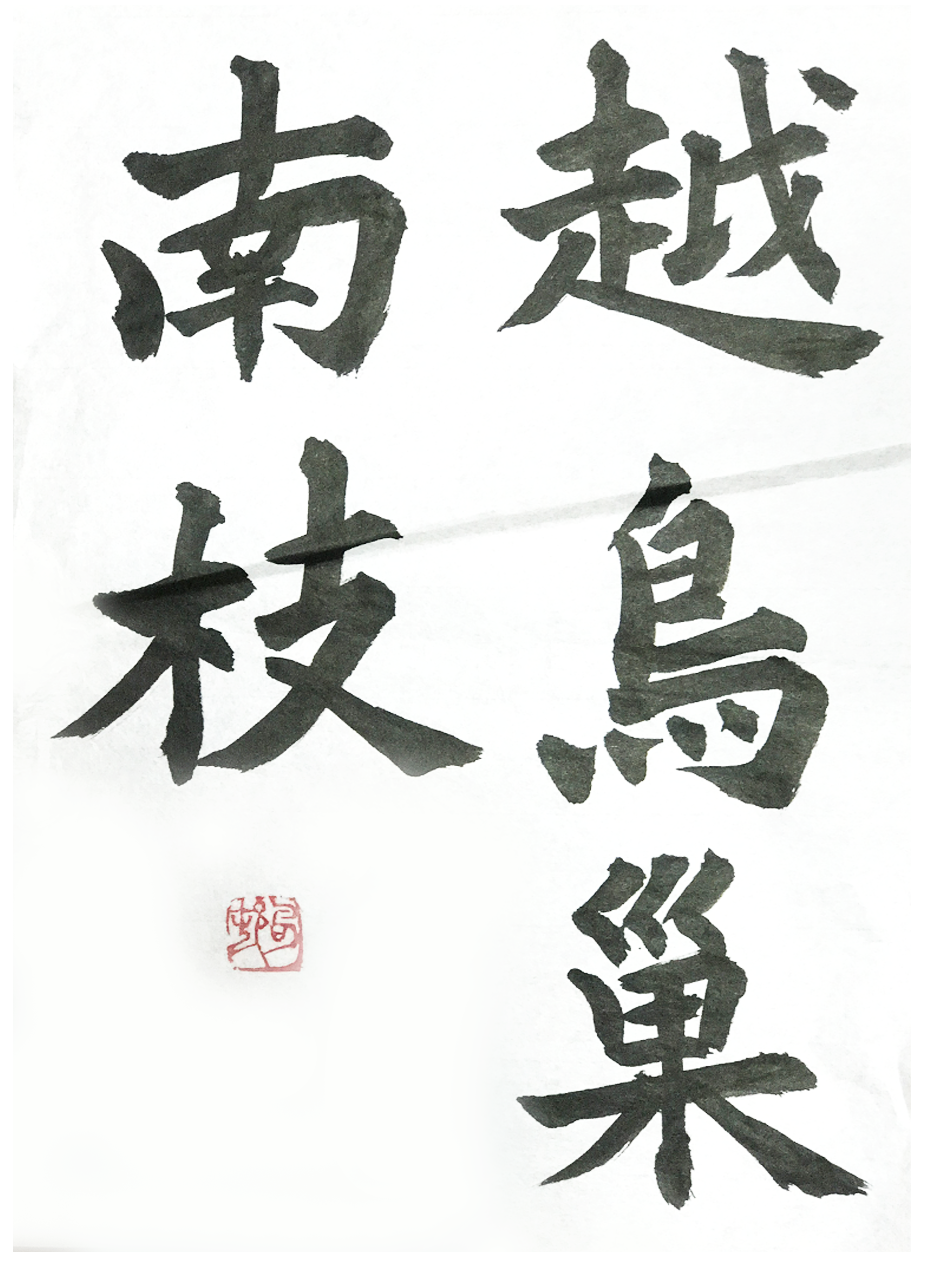 越鳥巢
南枝